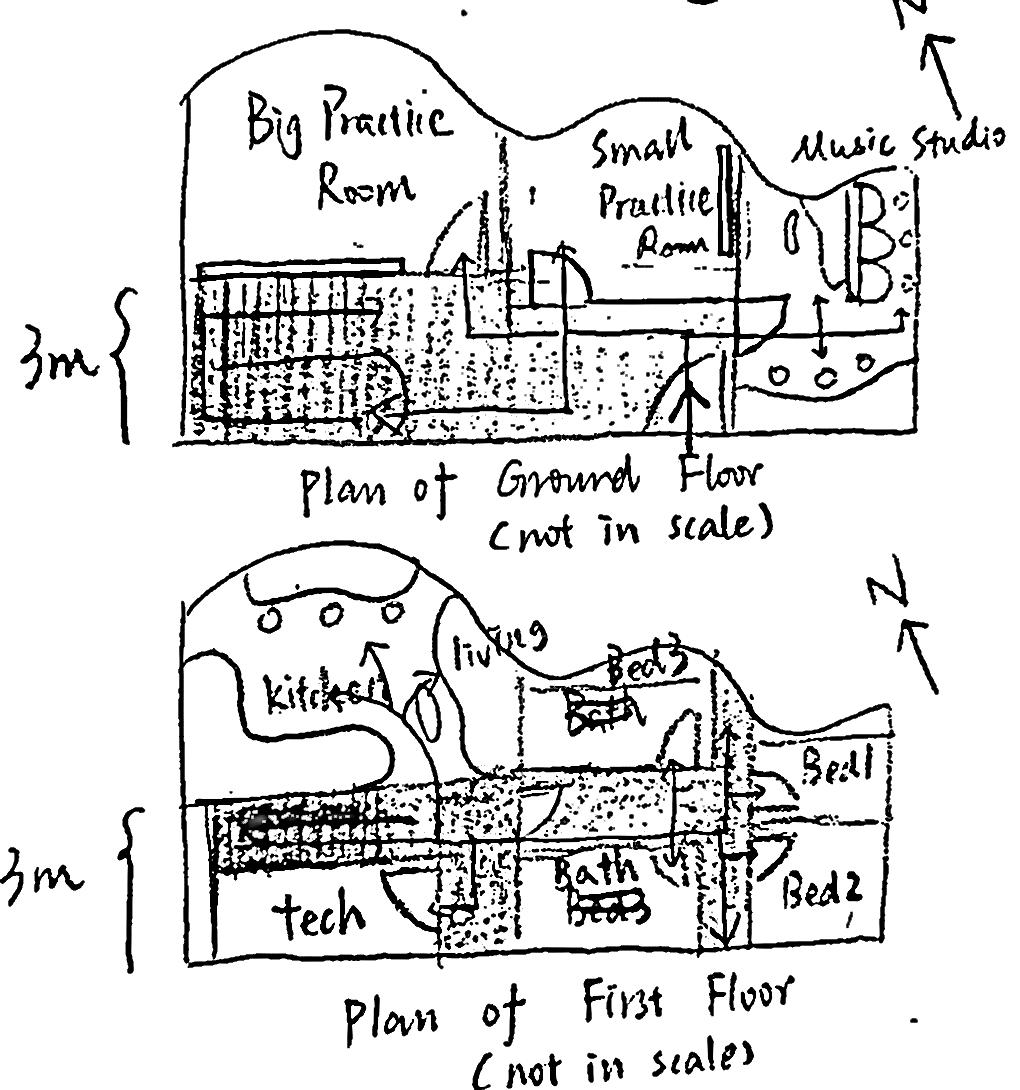 N
Big Practice
Room
Small
Practice
Room
Music Studio
3m
Plan of Ground Floor
(not in scale)
N
living
Bed3
Bath
kitchen
Bed1
3m
Bath
Bed3
Bed2
tech
Plan of First Floor
(not in scale)